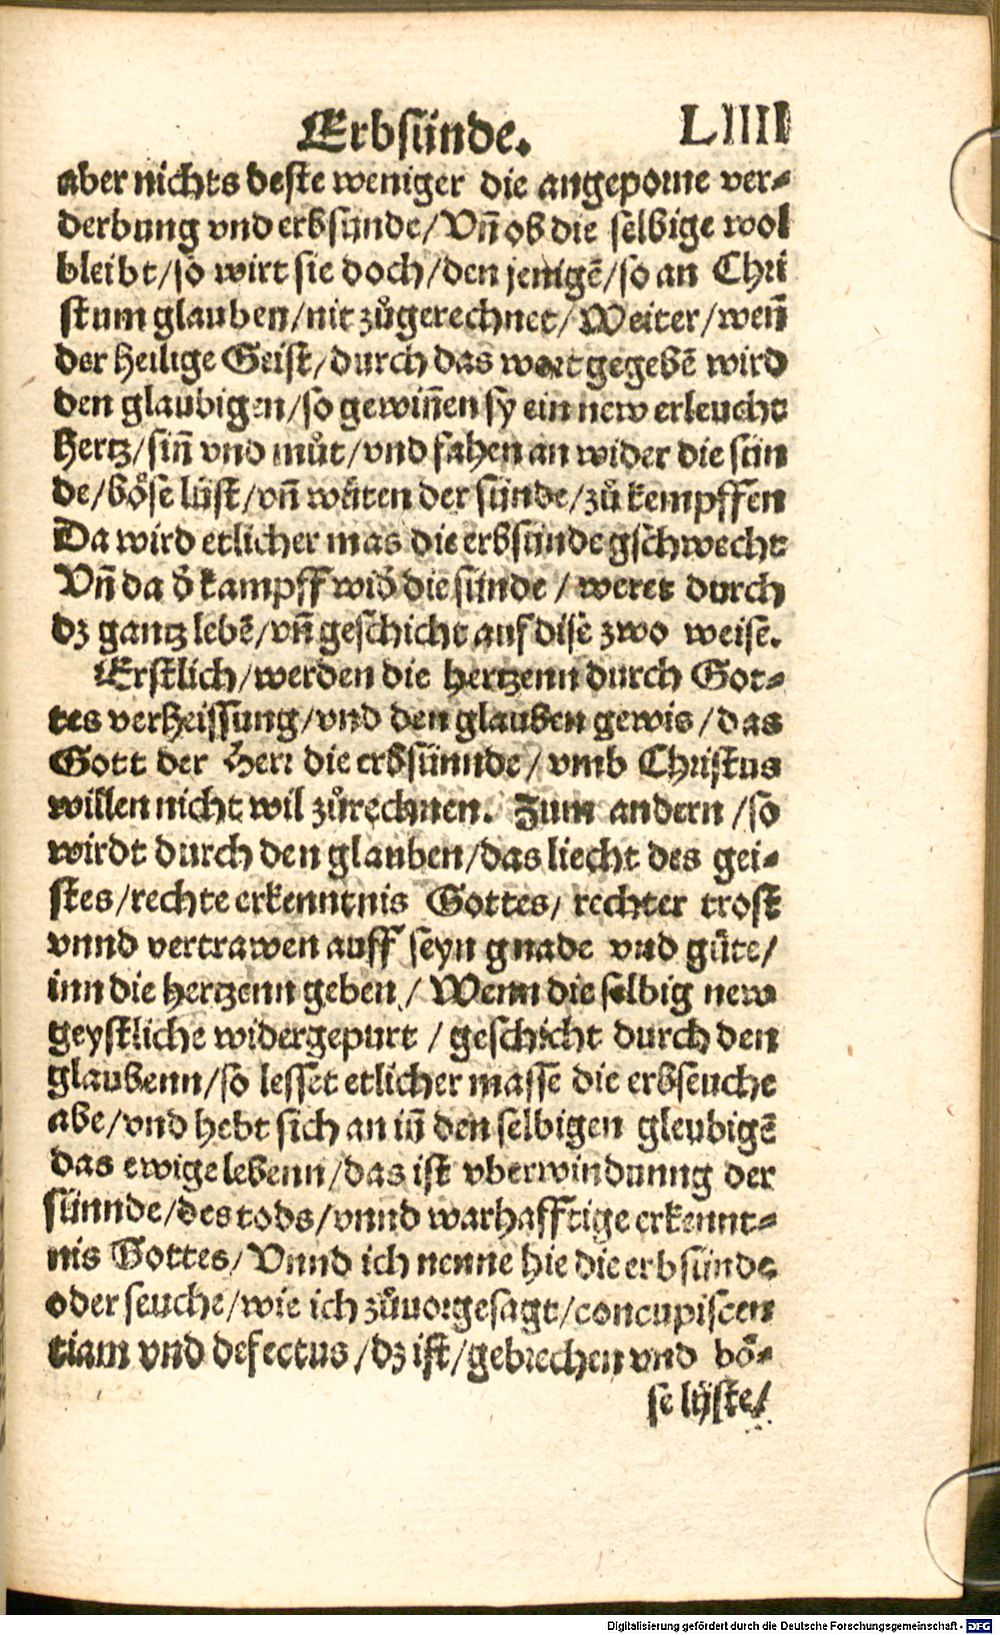 Erbsünde. LIIII
aber nichts deste weniger die angeporne ver-
derbung vnd erbsünde/Vñ ob die selbige wol
bleibt/so wirt sie doch/den jenigẽ/so an Chri
stum glauben/nit zůgerechnet/Weiter/weñ
der heilige Geist/durch das wort gegebẽ wird
den glaubigen/so gewiñen sy ein new erleucht
hertz/siñ vnd můt/vnd fahen an wider die sün
de/böse lüst/vñ wüten der sünde/zů kempffen
Da wird etlicher mas die erbsünde gschwecht
Vñ da d̕ kampff wid̕ die sünde / weret durch
dz gantz lebẽ/vñ geschicht auf dise zwo weise.
Erstlich/werden die hertzenn durch Got-
tes verheissung/vnd den glauben gewis/das
Gott der Herr die erbsünnde/vmb Christus
willen nicht wil zůrechnen. Zum andern/so
wirdt durch den glauben/das liecht des gei-
stes/rechte erkenntnis Gottes/rechter trost
vnnd vertrawen auff seyn gnade vnd güte/
inn die hertzenn geben/Wenn die selbig new
geystliche widergepurt / geschicht durch den
glaubenn/so lesset etlicher masse die erbseuche
abe/vnd hebt sich an iñ den selbigen gleubigẽ
das ewige lebenn/das ist vberwindunng der
sünnde/des tods/vnnd warhafftige erkennt-
nis Gottes/Vnnd ich nenne hie die erbsünde
oder seuche/wie ich zůuorgesagt/concupiscen
tiam vnd defectus/dz ist/gebrechen vnd bö-
se lüste/
Digitalisierung gefördert durch die Deutsche Forschungsgemeinschaft - DFG